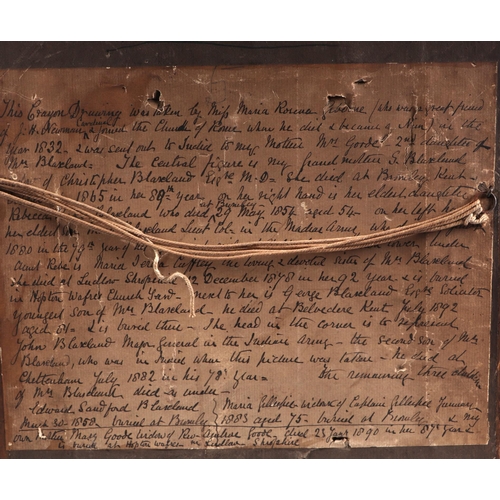 This Crayon Drawing was taken by Miss Maria Rosina (who was a great friend
of J. H. Newman & joined the Church of Rome when he did & became a Nun) in the
Year 1832 - & was sent out to India to my Mother Mrs Goode 2nd daughter of
Mrs Blaxland - The Central figure is my grandmother S. Blaxland
of Christopher Blaxland Esqre M.D - She died at Bromley Kent
1865 in her 88th year on her right hand is her eldest daughter
Rebecca Blaxland who died 29 May 1854 aged 54 on her left
her eldest Blaxland Lieut Col in the Madras Army, who
1880 in the 79th year of under
Aunt Rose is Maria the loving & devoted sister of Mrs Blaxland
She died at Ludlow Shropshire December 1878 in her 92 year & is buried
in Hopton Wafers Church Yard - next to her is George Blaxland Esqre Solicitor
youngest son of Mrs Blaxland he died at Belvedere Kent July 1892
aged & is buried there - The head in the corner is to represent
John Blaxland Major General in the Indian Army - the second son of Mrs
Blaxland, who was in India when this picture was taken - he died at
Cheltenham July 1882 in his 78 year = the remaining three
of Mrs Blaxland died as under -
Edward Sandford Blaxland Maria Gillespie widow of Captain Gillespie January
1883 aged 75 - buried at Bromley & my
own Mother Mary Goode widow of Rev Goode died 25 Jany 1890 in her 87 year &
is buried at Hopton Wafers nr Ludlow Shropshire